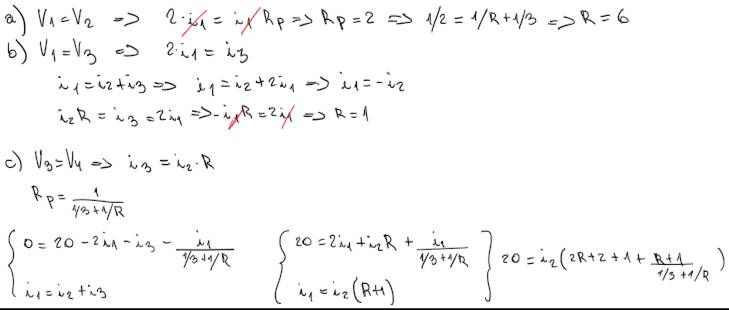 a) V1=V2 => 2·i1 = i1 Rp => Rp=2 => 1/2 = 1/R+1/3 => R=6
b) V1=V3 => 2·i1 = i3
i1=i2+i3 => i1=i2+2i1 => i1=-i2
i2R = i3 = 2i1 => -i1R = 2i1 => R=1
c) V3=V4 => i3 = i2·R
Rp = 1/(1/3+1/R)
{ 0 = 20 - 2i1 - i3 - i1/(1/3+1/R) { 20 = 2i1 + i2R + i1/(1/3+1/R) } 20 = i2(2R+2+1+ (R+1)/(1/3+1/R))
i1 = i2+i3 i1 = i2(R+1)